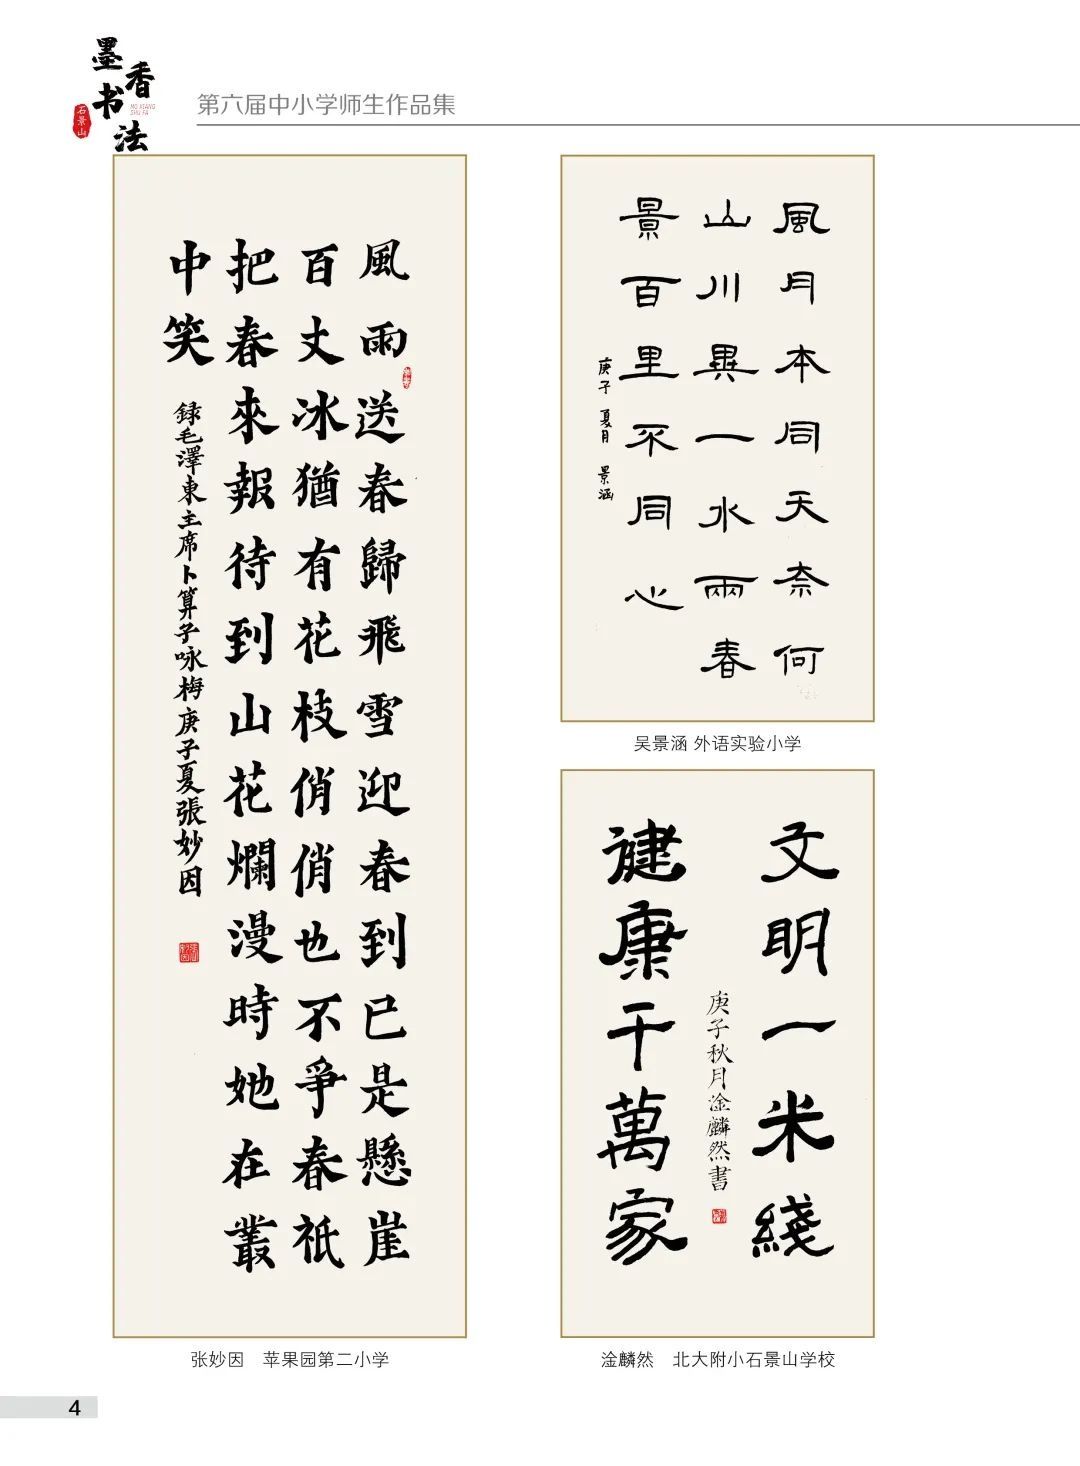 墨香书法
MO XIANG
SHU FA
石景山
第六届中小学师生作品集
風雨送春歸飛雪迎春到已是懸崖
百丈冰猶有花枝俏俏也不爭春祇
把春來報待到山花爛漫時她在叢
中笑
録毛澤東主席卜算子咏梅庚子夏張妙因
张妙因 苹果园第二小学
風月本同天奈何
山川異一水兩春
景百里不同心
庚子 夏月 景涵
吴景涵 外语实验小学
文明一米綫
健康千萬家
庚子秋月淦麟然書
淦麟然 北大附小石景山学校
4